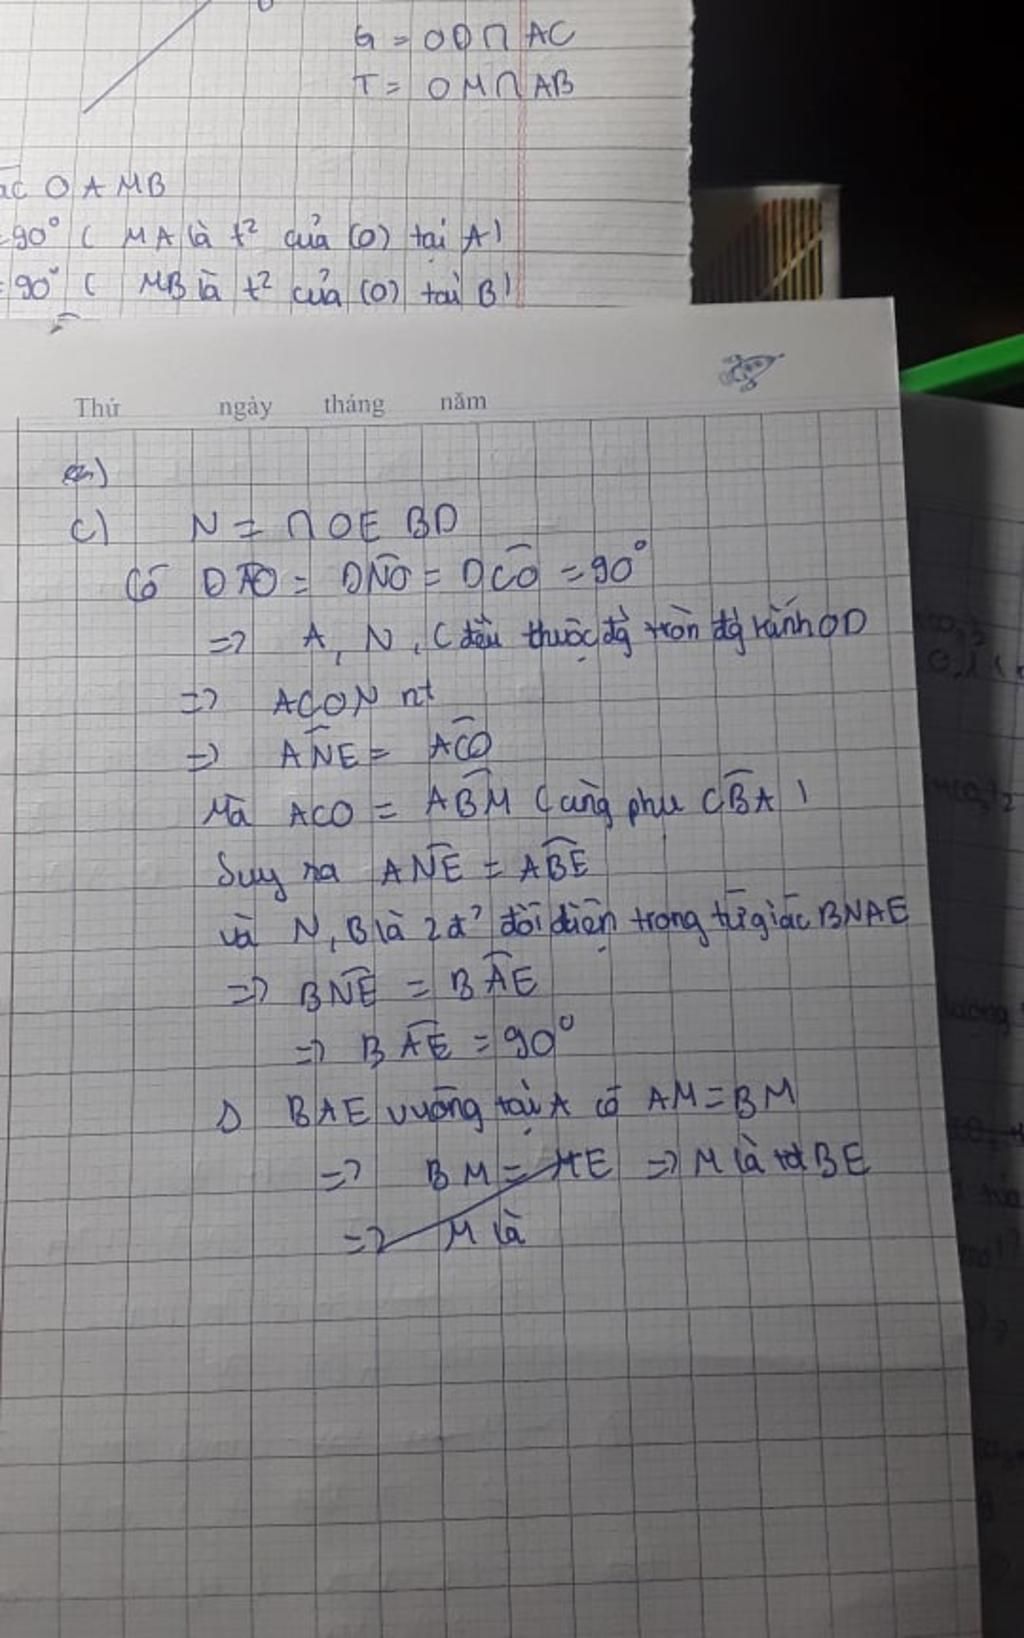 G = OD ∩ AC
T = OM ∩ AB
ác OAMB
= 90° ( MA là t² của (O) tại A)
= 90° ( MB là t² của (O) tại B)
Thứ ngày tháng năm
c) N = ∩ OE BD
Có DAO = DNO = DCO = 90°
=> A, N, C đều thuộc đg tròn đg kính OD
=> ACON nt
=> ANE = ACO
Mà ACO = ABM ( cùng phụ CBA )
Suy ra ANE = ABE
và N, B là 2 đ² đối diện trong tứ giác BNAE
=> BNE = BAE
=> BAE = 90°
Δ BAE vuông tại A có AM = BM
=> BM = ME => M là tđ BE
=> M là